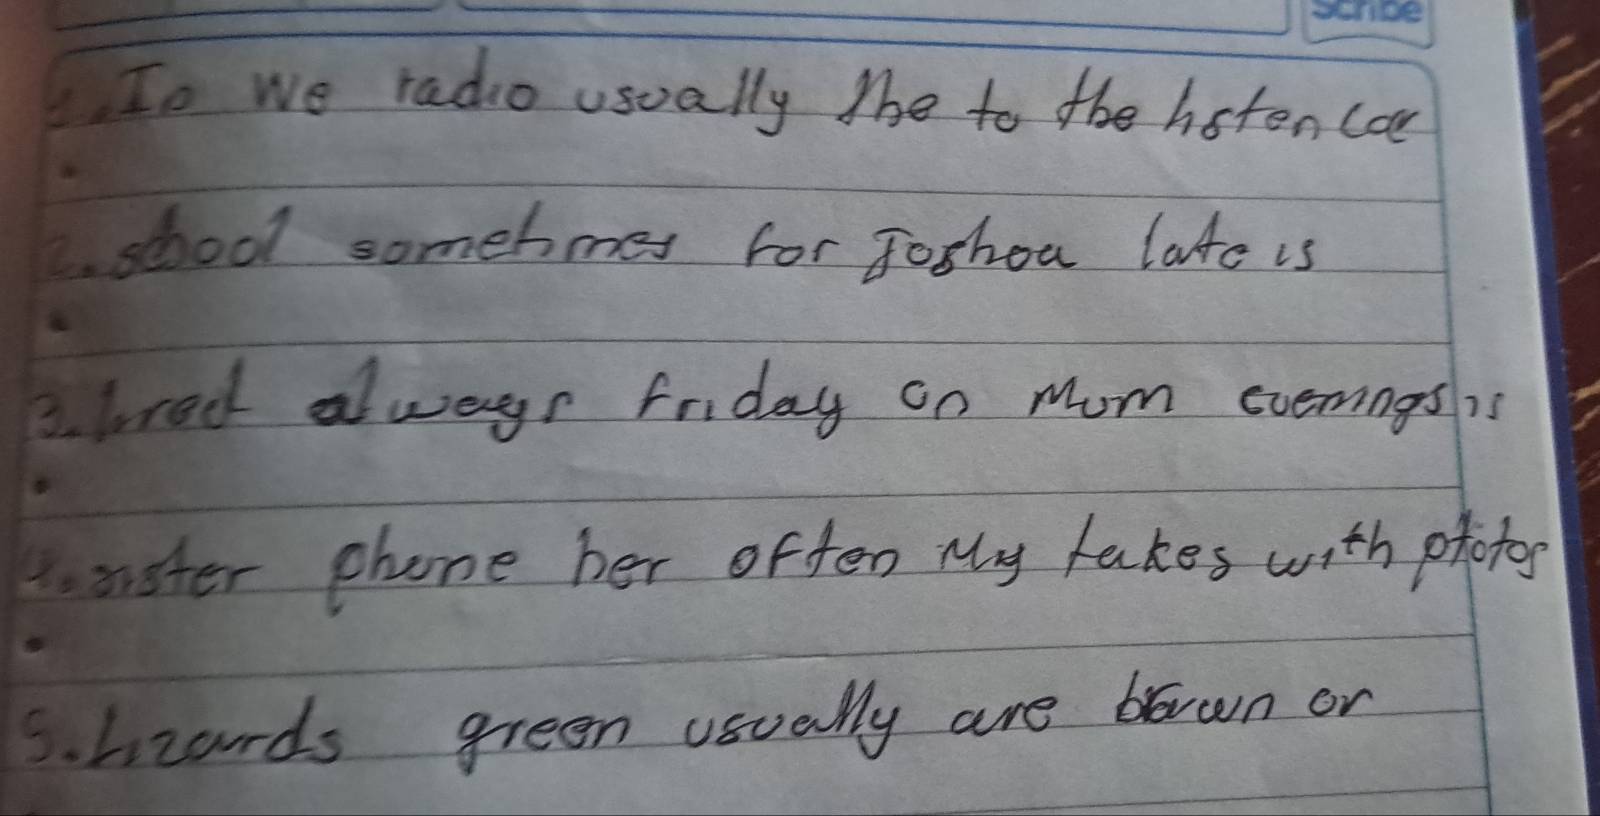 Scribe
1. In we radio usually the to the listen car
2. school sometimes for Joshua late is
3. tired always Friday on Mum evenings is
4. sister phone her often My takes with photos
5. Lizards green usually are brown or